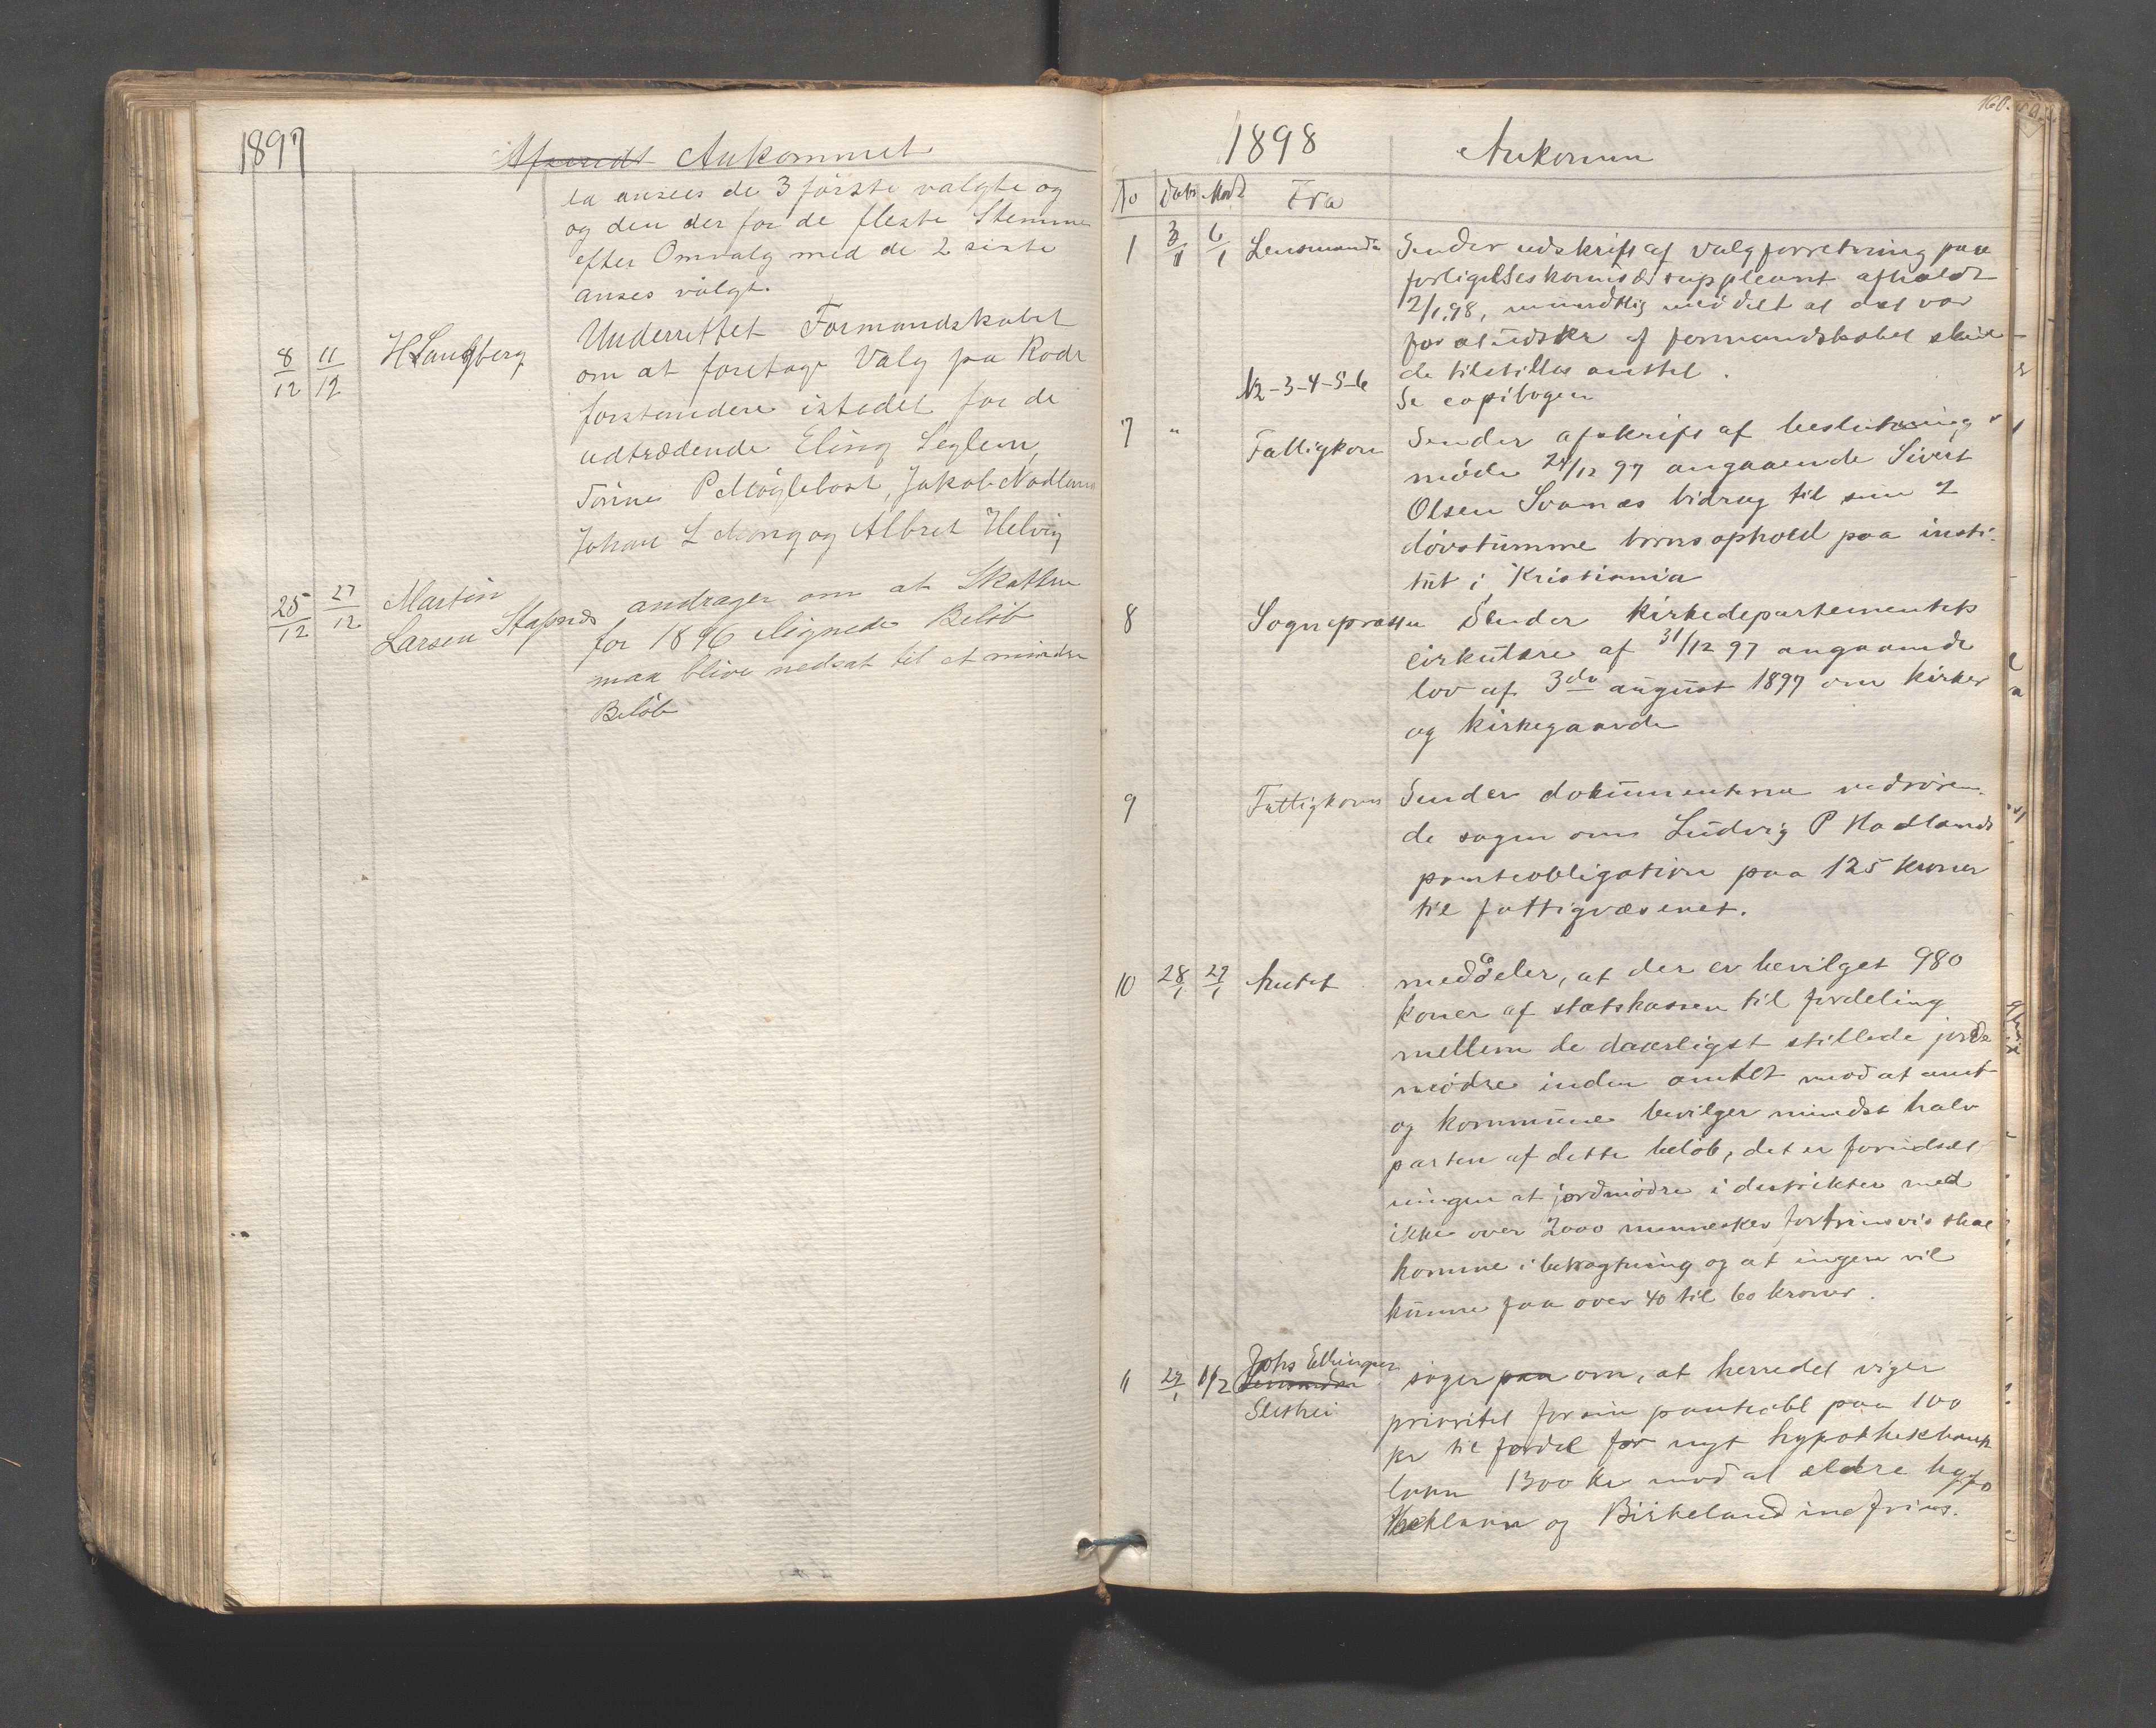 1897
Afsendt Ankommet
ea ansees de 3 første valgte og
og den der for de fleste Stemme
efter Omvalg med de 2 siste
anses valgt.
8/12 11/12 H Sandberg Underrettet Formandskabet
om at foretage Valg pa Rode
forstandere istedet for de
udtrædende Eling Seglem,
Tønnes P Møglebost, Jakob Nodland
Johan L Mong og Albret Helvig
25/12 27/12 Martin
Larsen Stapnes andrager om at Skatten
for 1896 lignede Beløb
maa blive nedsat til et mindre
Beløb
160.
1898 Ankomm
No Dato Mod Fra
1 3/1 6/1 Lensmanda Sender udskrift af valgforretning paa
forligelseskomis suppleant afholdt
2/1.98, mundtlig meddelt at det var
for at udskr af formandskabet skul
de tilstilles amtet.
N2-3-4-5-6 Se copibogen
7 " Fattigkom Sender afskrift af beslutning
møde 24/12 97 angaaende Sivert
Olsen Svanæs bidrag til sine 2
døvstumme børns ophold paa insti-
tut i Kristiania
8 Sognepræsten Sender kirkedepartementets
cirkulære af 31/12 97 angaaende
lov af 3de august 1897 om kirker
og kirkegaarde
9 Fattigkom Sender dokumenterne vedrøren-
de sagen om Ludvig P Hadlands
panteobligation paa 125 kroner
til fattigvæsenet.
10 28/1 29/1 Amtet meddeler, at der er bevilget 980
koner af statskassen til fordeling
mellem de daarligst stillede jorde
mødre inden amtet mod at amt
og kommune bevilger mindst halv
parten af dette beløb, det er forudsæt
ningen at jordmødre i destrikter med
ikke over 2000 mennesker fortrinsvis skal
komme i betragtning og at ingen vil
kunne faa over 40 til 60 kroner.
11 29/1 1/2 Johs Ellingsen
Lensmanden
Slethei
søger paa om, at herredet viger
prioritet for sin panteobl paa 100
kr til fordel for nyt hypothekbank
laan 1300 kr mod at ældre hypo
theklaan og Birkeland indfries.